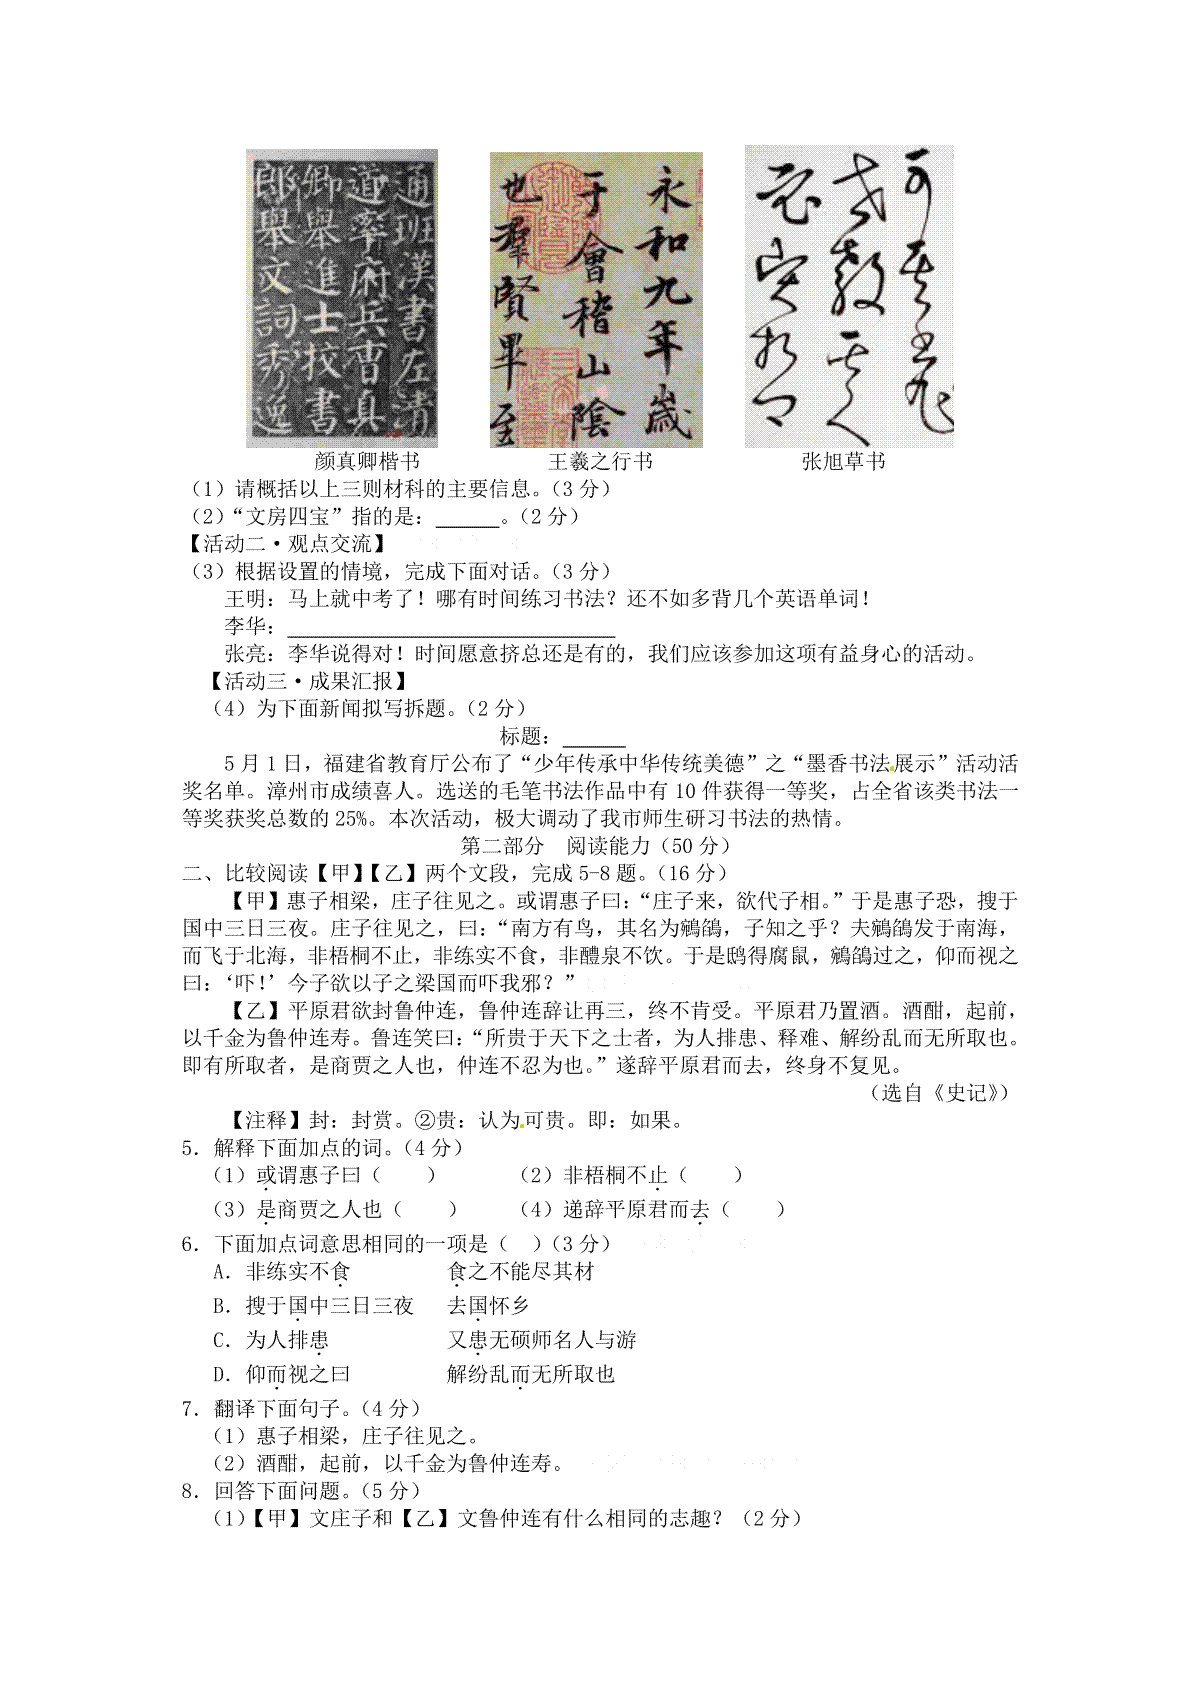 通班漢書左清
道率府兵曹真
卿舉進士校書
郎舉文詞秀逸
永和九年歲
于會稽山陰
也羣賢畢至
颜真卿楷书 王羲之行书 张旭草书
(1)请概括以上三则材科的主要信息。(3分)
(2)“文房四宝”指的是:______。(2分)
【活动二·观点交流】
(3)根据设置的情境，完成下面对话。(3分)
王明：马上就中考了！哪有时间练习书法？还不如多背几个英语单词！
李华：______
张亮：李华说得对！时间愿意挤总还是有的，我们应该参加这项有益身心的活动。
【活动三·成果汇报】
(4)为下面新闻拟写拆题。(2分)
标题：______
5月1日，福建省教育厅公布了“少年传承中华传统美德”之“墨香书法展示”活动活
奖名单。漳州市成绩喜人。选送的毛笔书法作品中有10件获得一等奖，占全省该类书法一
等奖获奖总数的25%。本次活动，极大调动了我市师生研习书法的热情。
第二部分 阅读能力(50分)
二、比较阅读【甲】【乙】两个文段，完成5-8题。(16分)
【甲】惠子相梁，庄子往见之。或谓惠子曰：“庄子来，欲代子相。”于是惠子恐，搜于
国中三日三夜。庄子往见之，曰：“南方有鸟，其名为鹓鶵，子知之乎？夫鹓鶵发于南海，
而飞于北海，非梧桐不止，非练实不食，非醴泉不饮。于是鸱得腐鼠，鹓鶵过之，仰而视之
曰：‘吓！’今子欲以子之梁国而吓我邪？”
【乙】平原君欲封鲁仲连，鲁仲连辞让再三，终不肯受。平原君乃置酒。酒酣，起前，
以千金为鲁仲连寿。鲁连笑曰：“所贵于天下之士者，为人排患、释难、解纷乱而无所取也。
即有所取者，是商贾之人也，仲连不忍为也。”遂辞平原君而去，终身不复见。
(选自《史记》)
【注释】封：封赏。②贵：认为可贵。即：如果。
5．解释下面加点的词。(4分)
(1)或谓惠子曰( ) (2)非梧桐不止( )
(3)是商贾之人也( ) (4)递辞平原君而去( )
6．下面加点词意思相同的一项是( )(3分)
A．非练实不食 食之不能尽其材
B．搜于国中三日三夜 去国怀乡
C．为人排患 又患无硕师名人与游
D．仰而视之曰 解纷乱而无所取也
7．翻译下面句子。(4分)
(1)惠子相梁，庄子往见之。
(2)酒酣，起前，以千金为鲁仲连寿。
8．回答下面问题。(5分)
(1)【甲】文庄子和【乙】文鲁仲连有什么相同的志趣？(2分)